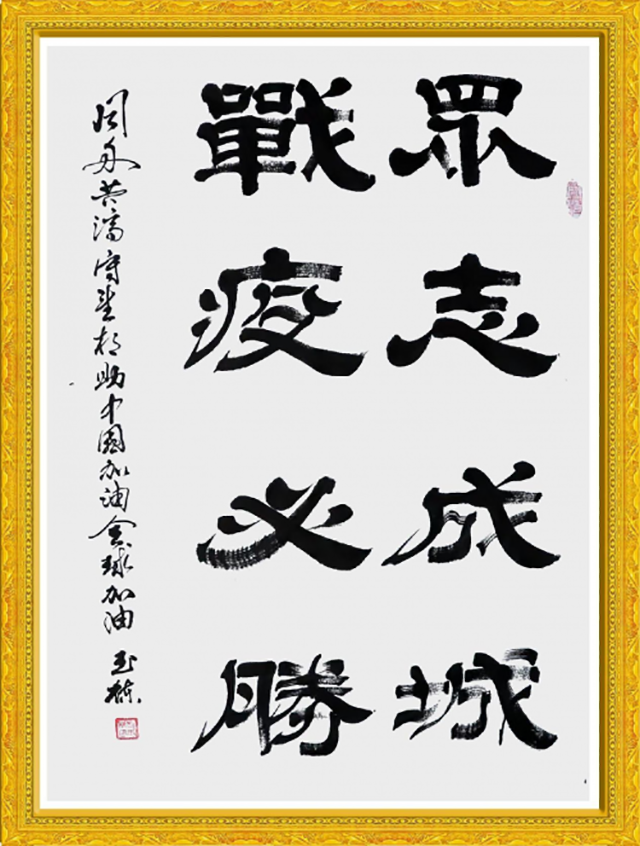 眾志成城
戰疫必勝
同舟共濟守望相助中国加油全球加油